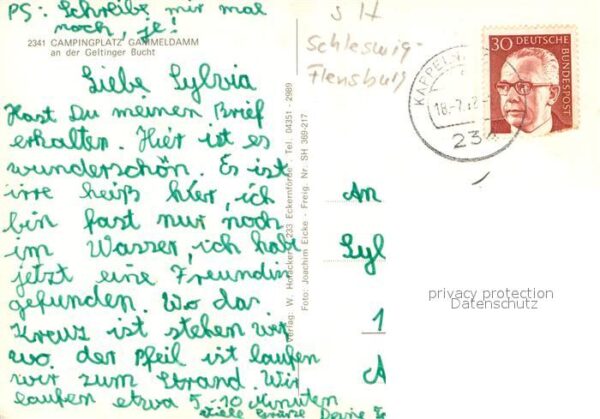 PS: Schreibe mir mal
noch, je!
2341 CAMPINGPLATZ GAMMELDAMM
an der Geltinger Bucht
Liebe Sylvia
Hast Du meinen Brief
erhalten. Hier ist es
wunderschön. Es ist
irre heiß hier, ich
bin fast nur noch
im Wasser, ich hab
jetzt eine Freundin
gefunden. Wo das
Kreuz ist stehen wir
wo der Pfeil ist laufen
wir zum Strand. Wir
laufen etwa 5-10 Minuten
Viele Grüße Deine
Verlag: W. 233 Eckernförde Tel. 04351 - 2989
Foto: Joachim Eicke - Freig. Nr. SH 369-217
S H
Schleswig-
Flensburg
KAPPELN
18.-7.
234
30 DEUTSCHE BUNDESPOST
An
Syl
1
A
privacy protection
Datenschutz